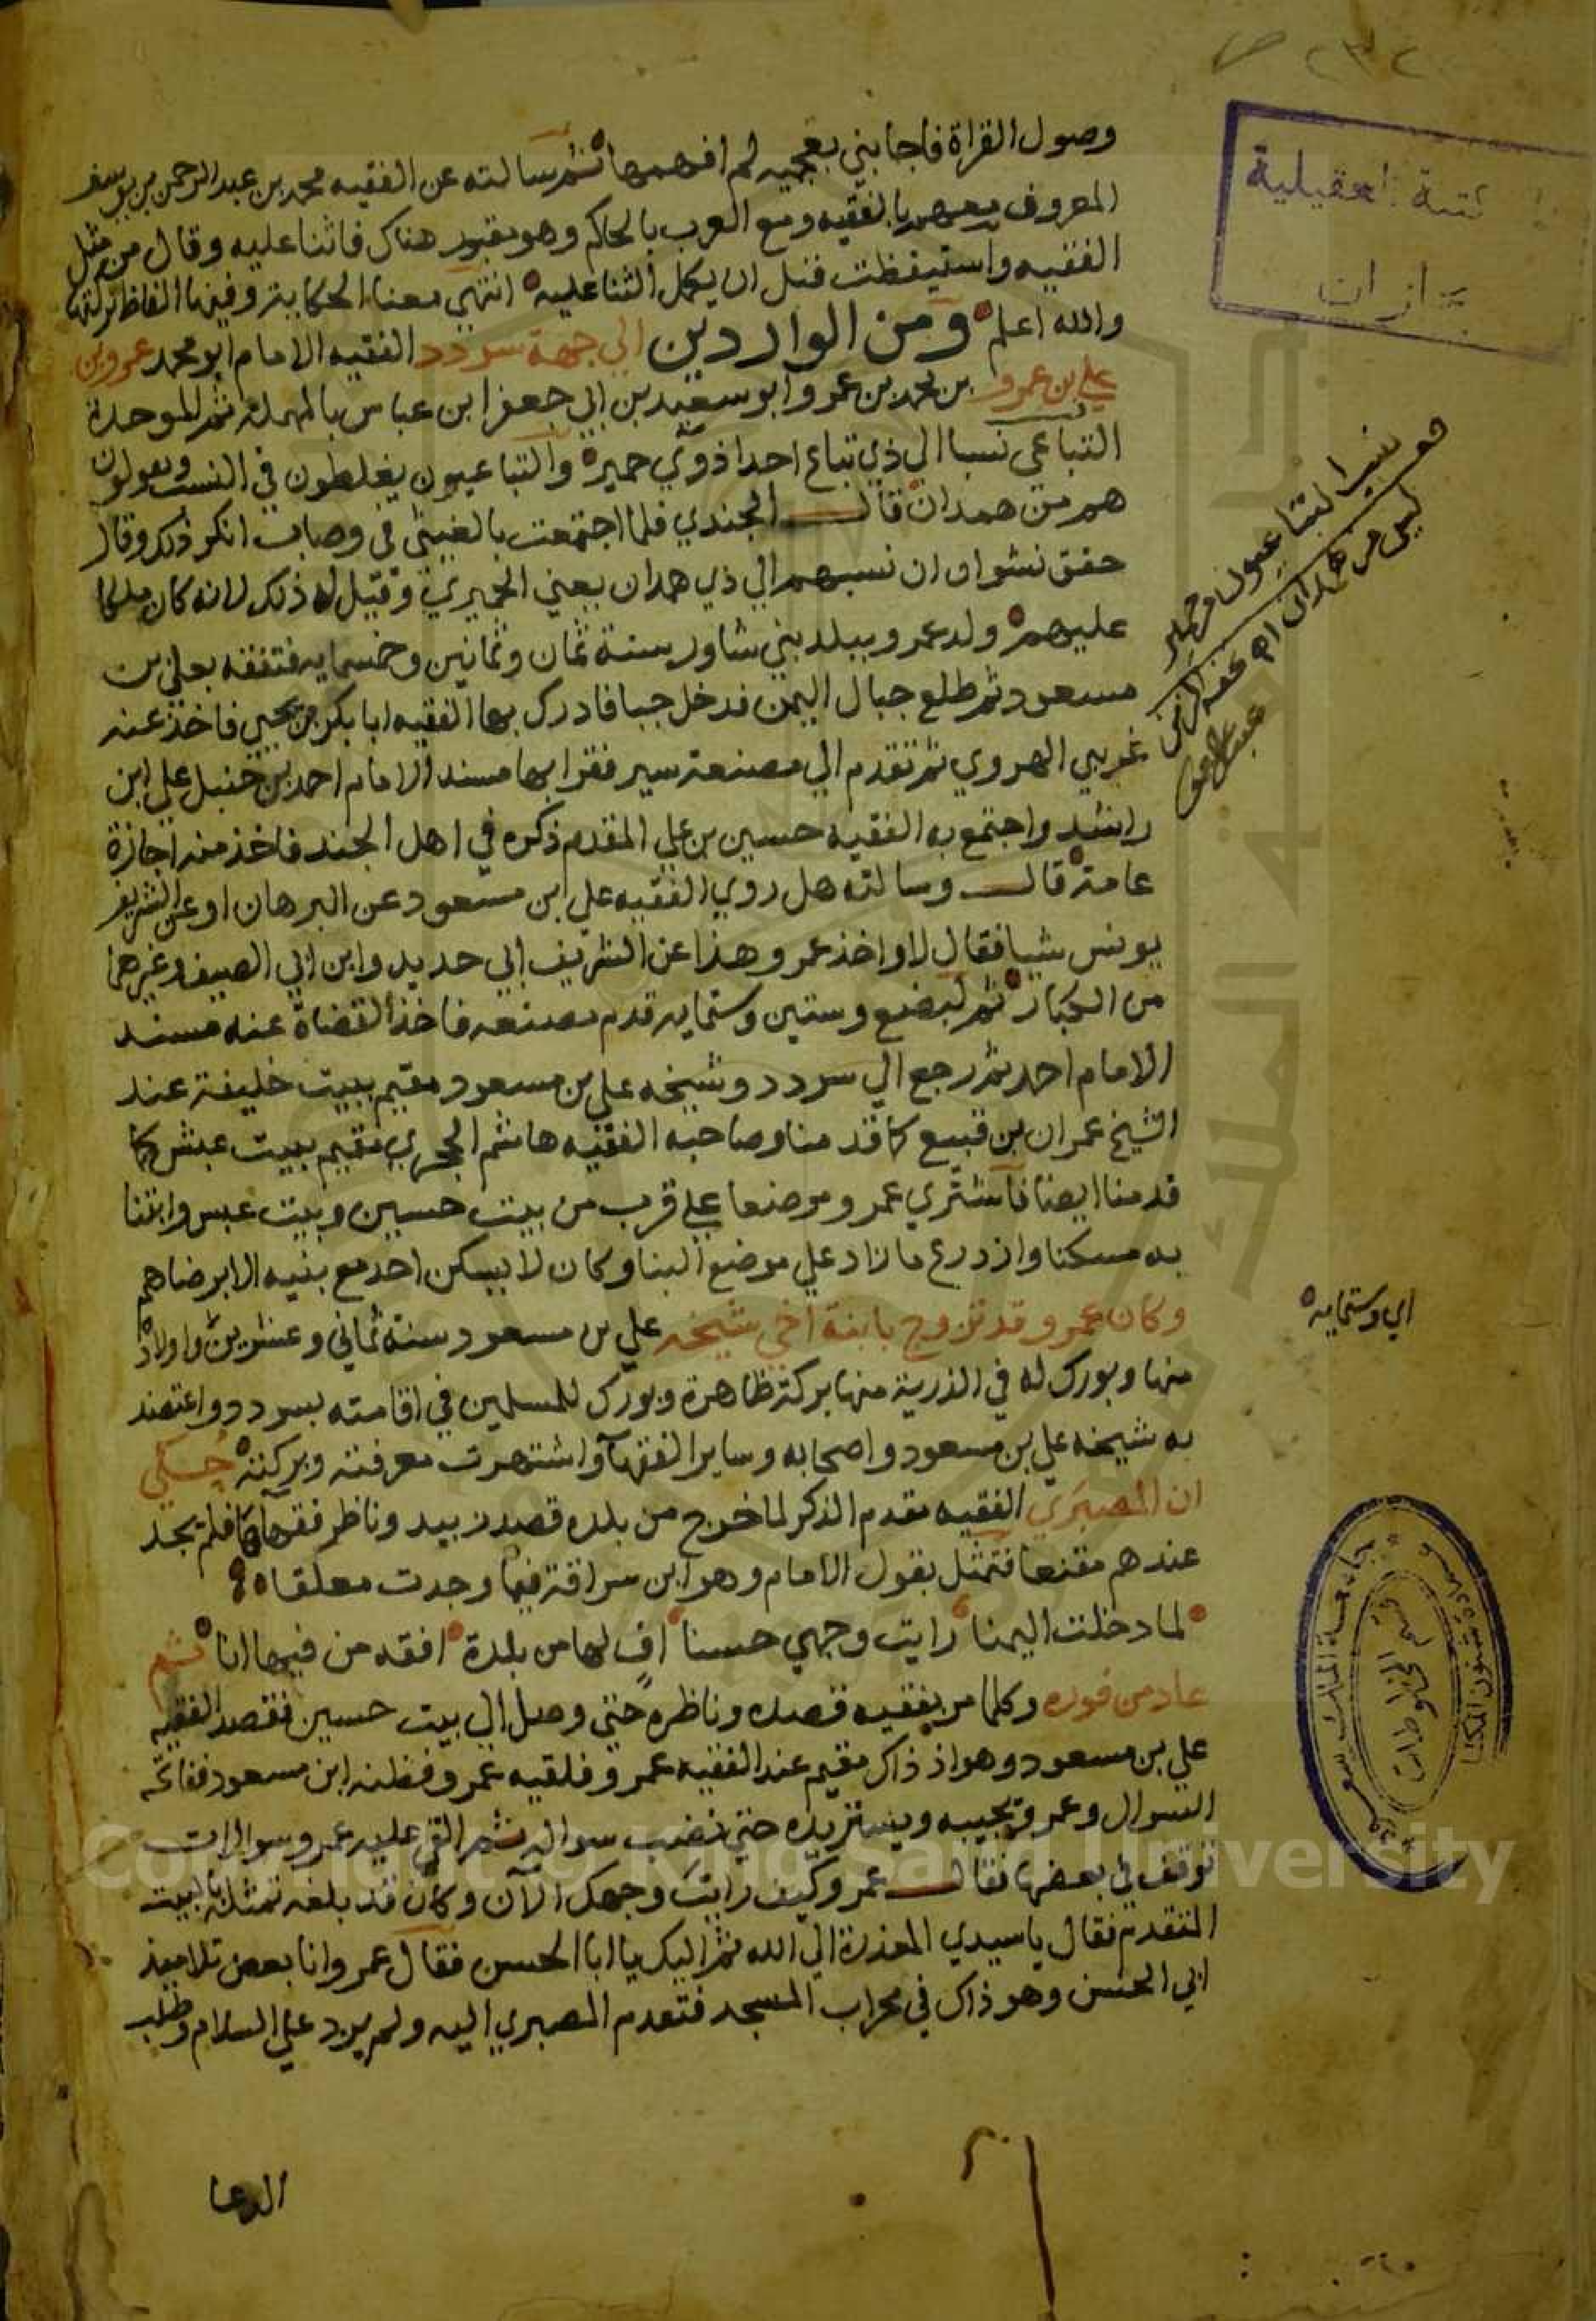 وصول القراة فاجابني بعجميه لم افهمها ثم سالته عن الفقيه محمد بن عبد الرحمن بن يوسف
المعروف معهم بالفقيه ومع العرب بالحاكم وهو مقبور هناك فاثنا عليه وقال من مثل
الفقيه واستيقظت قبل ان يكمل الثنا عليه انتهي معنا الحكاية وفيها الفاظ تركتها
والله اعلم ومن الواردين الي جهة سردد الفقيه الامام ابو محمد عمرو بن
علي بن عمرو بن محمد بن عمرو ابو سعيد بن ابي جعفر ابن عباس بالمهملة ثم الموحدة
التباعي نسبا الي ذي تباع احد اذوي حمير والتباعيون يغلطون في النسب ويقولون
هم من همدان قال الجندي فلما اجتمعت بالغيثي في وصاب انكر ذلك وقال
حقق نشوان ان نسبهم الي ذي همدان يعني الحميري وقيل له ذلك لانه كان ملكا
عليهم ولد عمرو ببلد بني شاور سنة ثمان وثمانين وخمسمايه فتفقه بعلي بن
مسعود ثم طلع جبال اليمن فدخل جبا فادرك بها الفقيه ابا بكر بن يحيي فاخذ عنه
غريبي الهروي ثم تقدم الي مصنعة سير فقرا بها مسند الامام احمد بن حنبل علي ابن
راشد واجتمع به الفقيه حسين بن علي المقدم ذكره في اهل الجند فاخذ منه اجازة
عامة قال وسالته هل روي الفقيه علي ابن مسعود عن البرهان او عن الشريف
يونس شيا فقال لا واخذ عمرو هذا عن الشريف ابي حديد وابن ابي الصيف وغيرهما
من الكبار ثم لبضع وستين وستمايه قدم مصنعه فاخذ القضاة عنه مسند
الامام احمد ثم رجع الي سردد وشيخه علي بن مسعود مقيم ببيت خليفة عند
الشيخ عمران بن قبيع كما قدمنا وصاحبه الفقيه هاشم الحجري مقيم ببيت عبش كما
قدمنا ايضا فاشتري عمرو موضعا علي قرب من بيت حسين وبيت عبس وابتنا
به مسكنا وازدرع ما زاد علي موضع البنا وكان لا يسكن احد مع بنيه الا برضاهم
وكان عمرو قد تزوج بابنة اخي شيخه علي بن مسعود سنة ثماني وعشرين واولاده
منها وبورك له في الذرية منها بركة ظاهرة وبورك للمسلمين في اقامته بسردد واعتضد
به شيخه علي بن مسعود واصحابه وساير الفقهآ واشتهرت معرفته وبركته حكي
ان المصبري الفقيه مقدم الذكر لما خرج من بلده قصد زبيد وناظر فقهآها فلم يجد
عندهم مقنعا فتمثل بقول الامام وهو ابن سراقة فيما وجدت معلقا
لما دخلت اليمنا رايت وجهي حسنا اف لها من بلدة افقه من فيها انا ثم
عاد من فوره وكلما مر بفقيه قصده وناظره حتي وصل الي بيت حسين فقصد الفقيه
علي بن مسعود وهو اذ ذاك مقيم عند الفقيه عمرو فلقيه عمرو فظنه ابن مسعود ففاتحه
السوال وعمرو يجيبه ويستزيده حتي نضب سواله ثم القي عليه عمرو سوالات
توقف في بعضها فقال عمرو كيف رايت وجهك الآن وكان قد بلغه تمثله بالبيت
المتقدم فقال يا سيدي المعذرة الي الله ثم اليك يا ابا الحسن فقال عمرو انا بعض تلاميذ
ابي الحسن وهو ذاك في محراب المسجد فتقدم المصبري اليه ولم يزد علي السلام وطلب
الدعا
التباعيون من حمير
ليس من همدان
اي وستمايه
جامعة الملك سعود
قسم المخطوطات
عمادة شئون المكتبات
Copyright © King Saud University